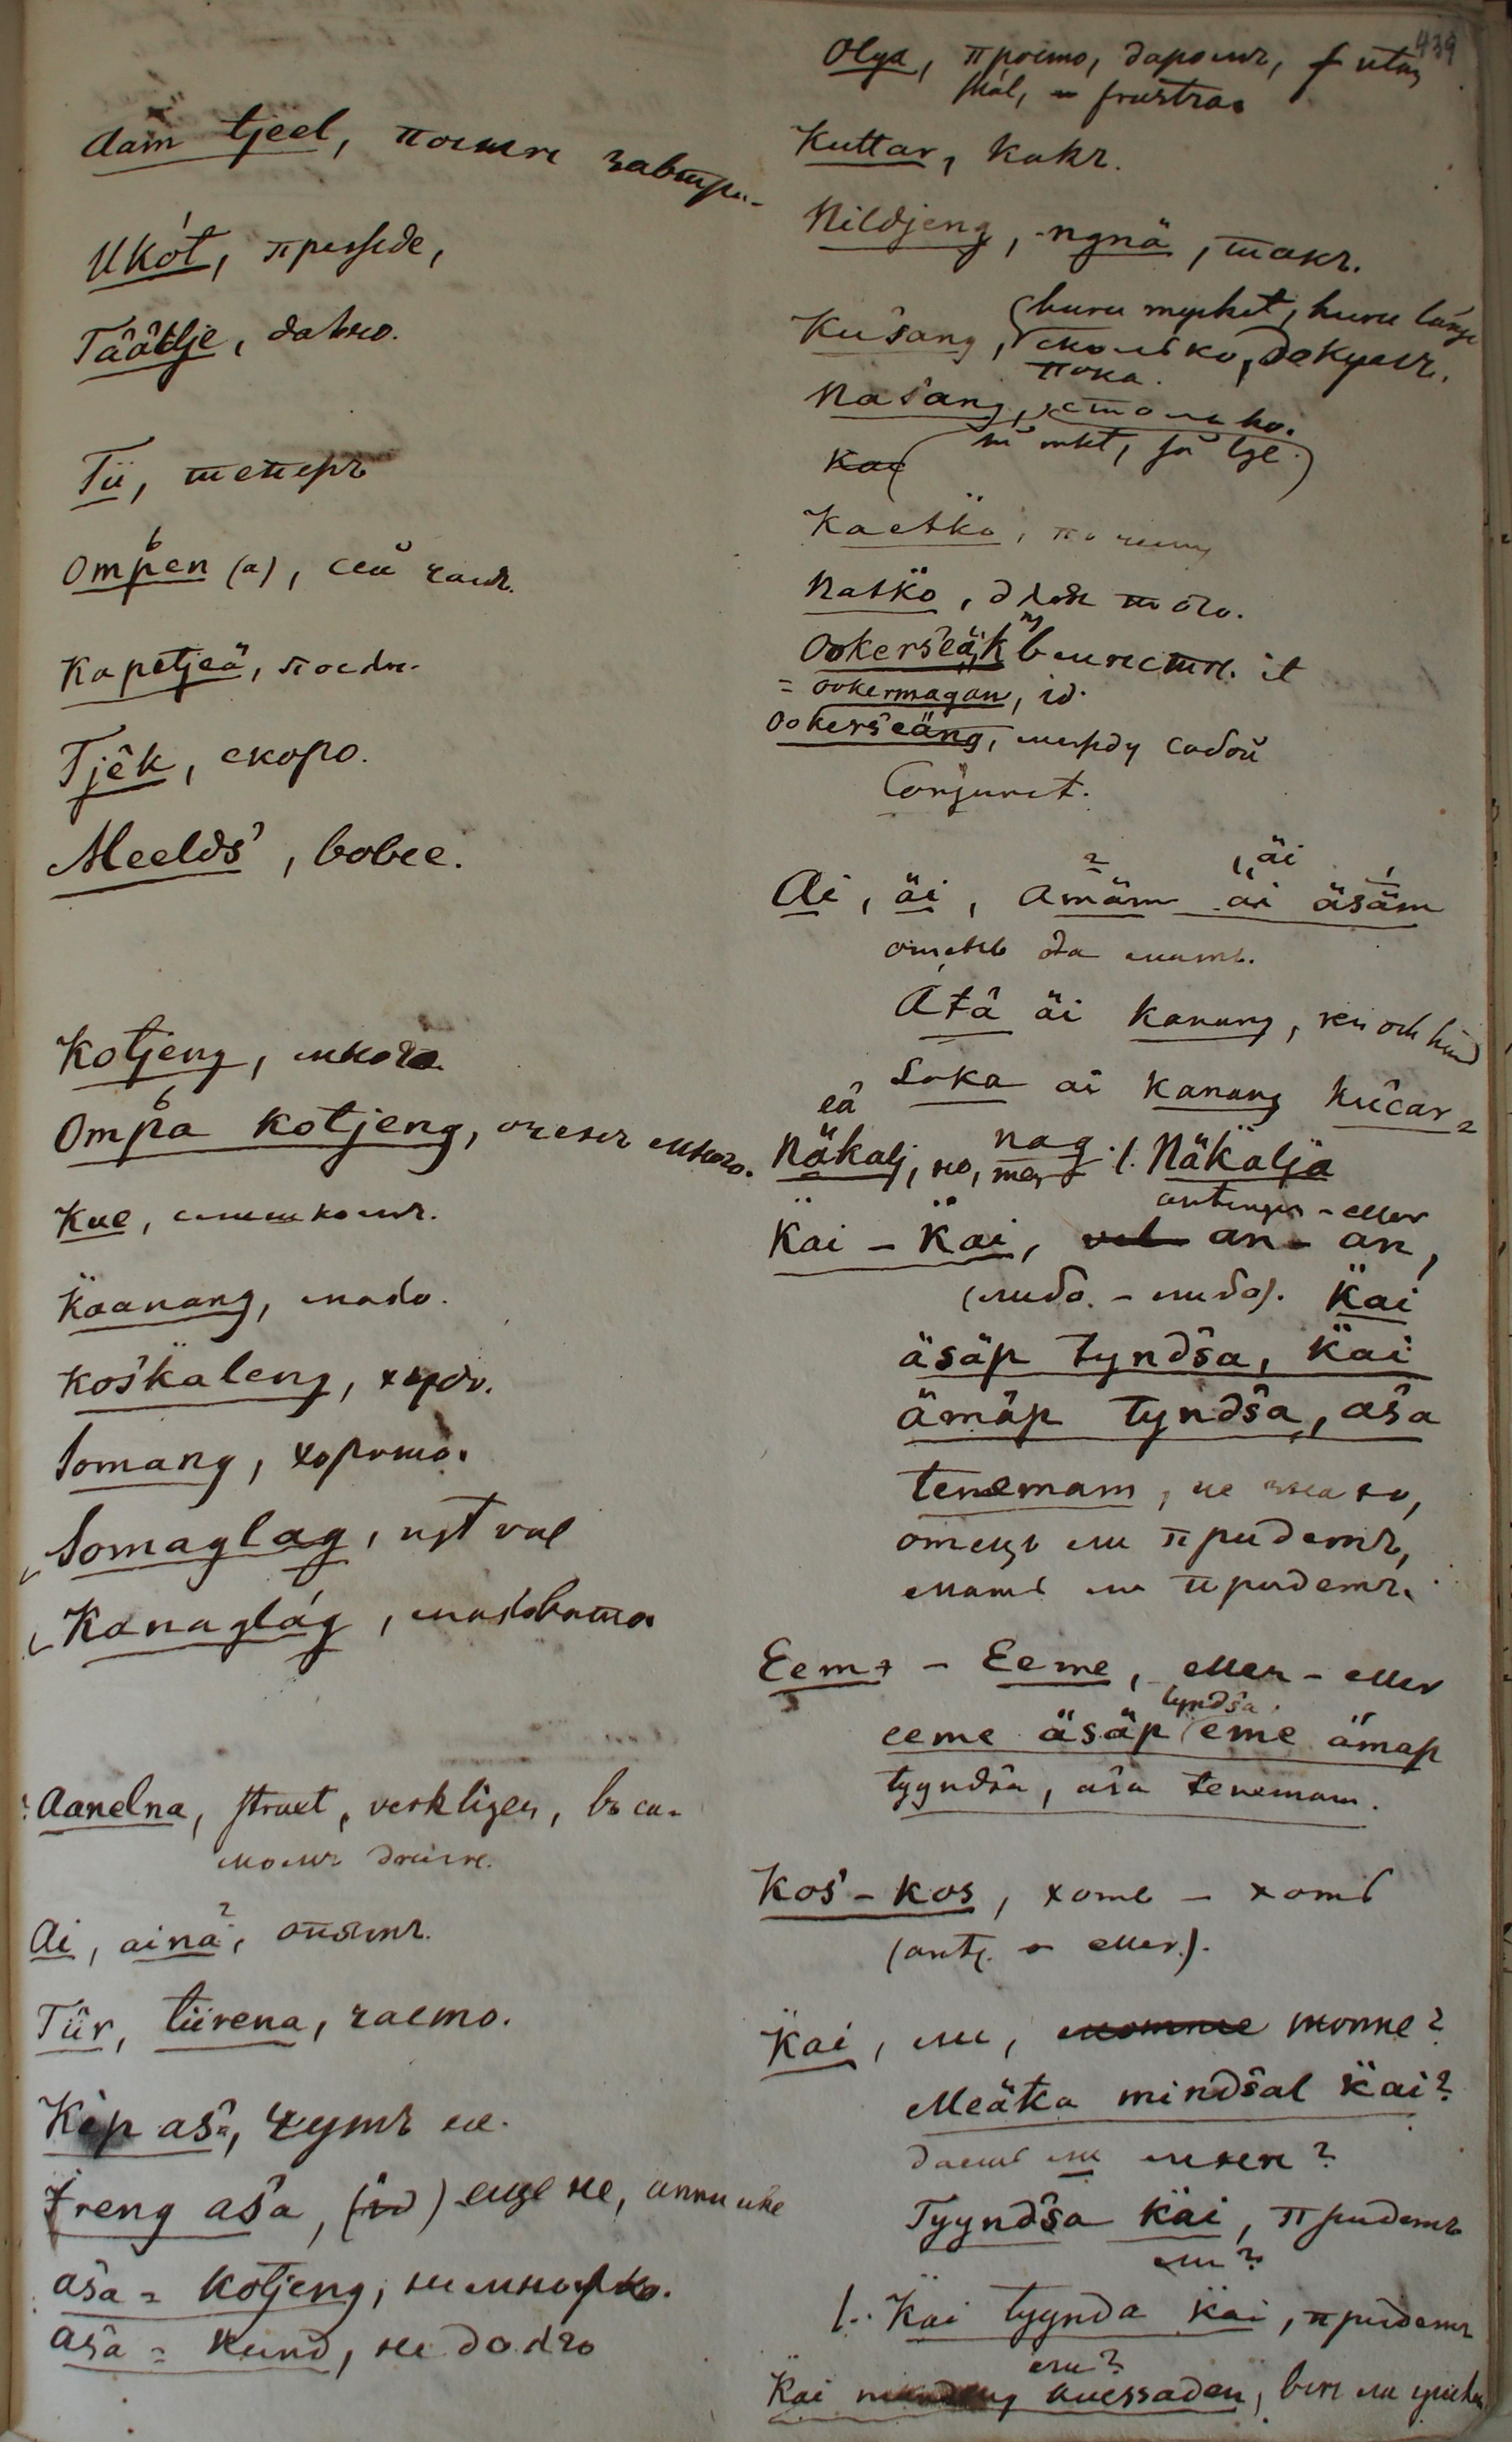 Aam tjeel, послѣ завтра.
Ukót, прежде,
Tâätlje, давно.
Tii, теперъ
Ompen (a), сей часъ.
Kapetjeä, послѣ.
Tjêk, скоро.
Meelds', вовсе.
Kotjeng, много.
Ompa kotjeng, оченъ много.
Kue, слишкомъ.
K̈aanang, мало.
Kos̈kaleng, худо.
Somang, хорошо.
Somaglag,
Kanaglág, маловато
Aanelna, straxt, verkligen, въ са-
момъ дѣлѣ.
Ai, ainä, опять.
Tiir, tiirena, часто.
Kêp as̑a, чуть не.
Ireng as̑a, (id) еще не, ännu icke
as̑a = kotjeng, не множко.
as̑a = kund, не долго
439
Olga, просто, даромъ, utan
skäl, frustra
Kuttar, какъ.
Nildjeng, -ngnä, такъ.
Kus̑ang, (huru mycket, huru länge
сколько, докуль.
пока.
Nas̑ang, столько.
så mkt, så lge)
Kaetk̈o, почему
Natk̈o, для того.
Ookers̑eäk вмѣстѣ. it
= ookermagan, id.
Ookers̑eäng, между собой
Conjunct.
Ai, äi, amäm äi äsäm
äi
отецъ да мать.
Atä äi kanang, ren och hund
Loka ai kanang
eä
Näkalj, но, nag l. Näk̈alja
antingen - eller
K̈ai - K̈ai, an - an,
(либо - либо). K̈ai
äsäp tynds̑a, k̈ai
ämäp tynds̑a, as̑a
tenemam, не знаю,
отецъ ли придетъ,
мать ли придетъ.
Eeme - Eeme, eller - eller
tynds̑a
eeme äsäp eme ämap
tyynds̑a, as̑a tenemam.
Kos̑ - kos, хоть - хоть
(antg. - eller).
K̈ai, ли, månne?
Meätka minds̑al k̈ai?
даешь ли мнѣ?
Tyynds̑a k̈ai, придетъ
ли?
l. K̈ai tyynda k̈ai, придетъ
ли?
K̈ai kuessaden, всѣ ли